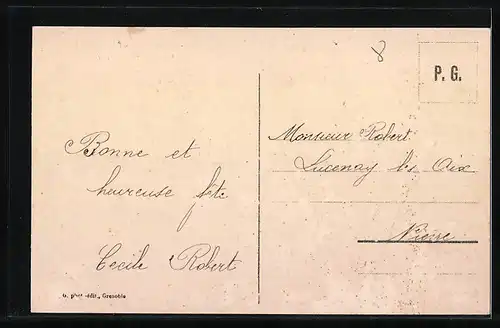 8
P. G.
Bonne et
heureuse fête
Cecile Robert
Monsieur Robert
Lucenay lès Aix
Nièvre
G. phot-édit., Grenoble